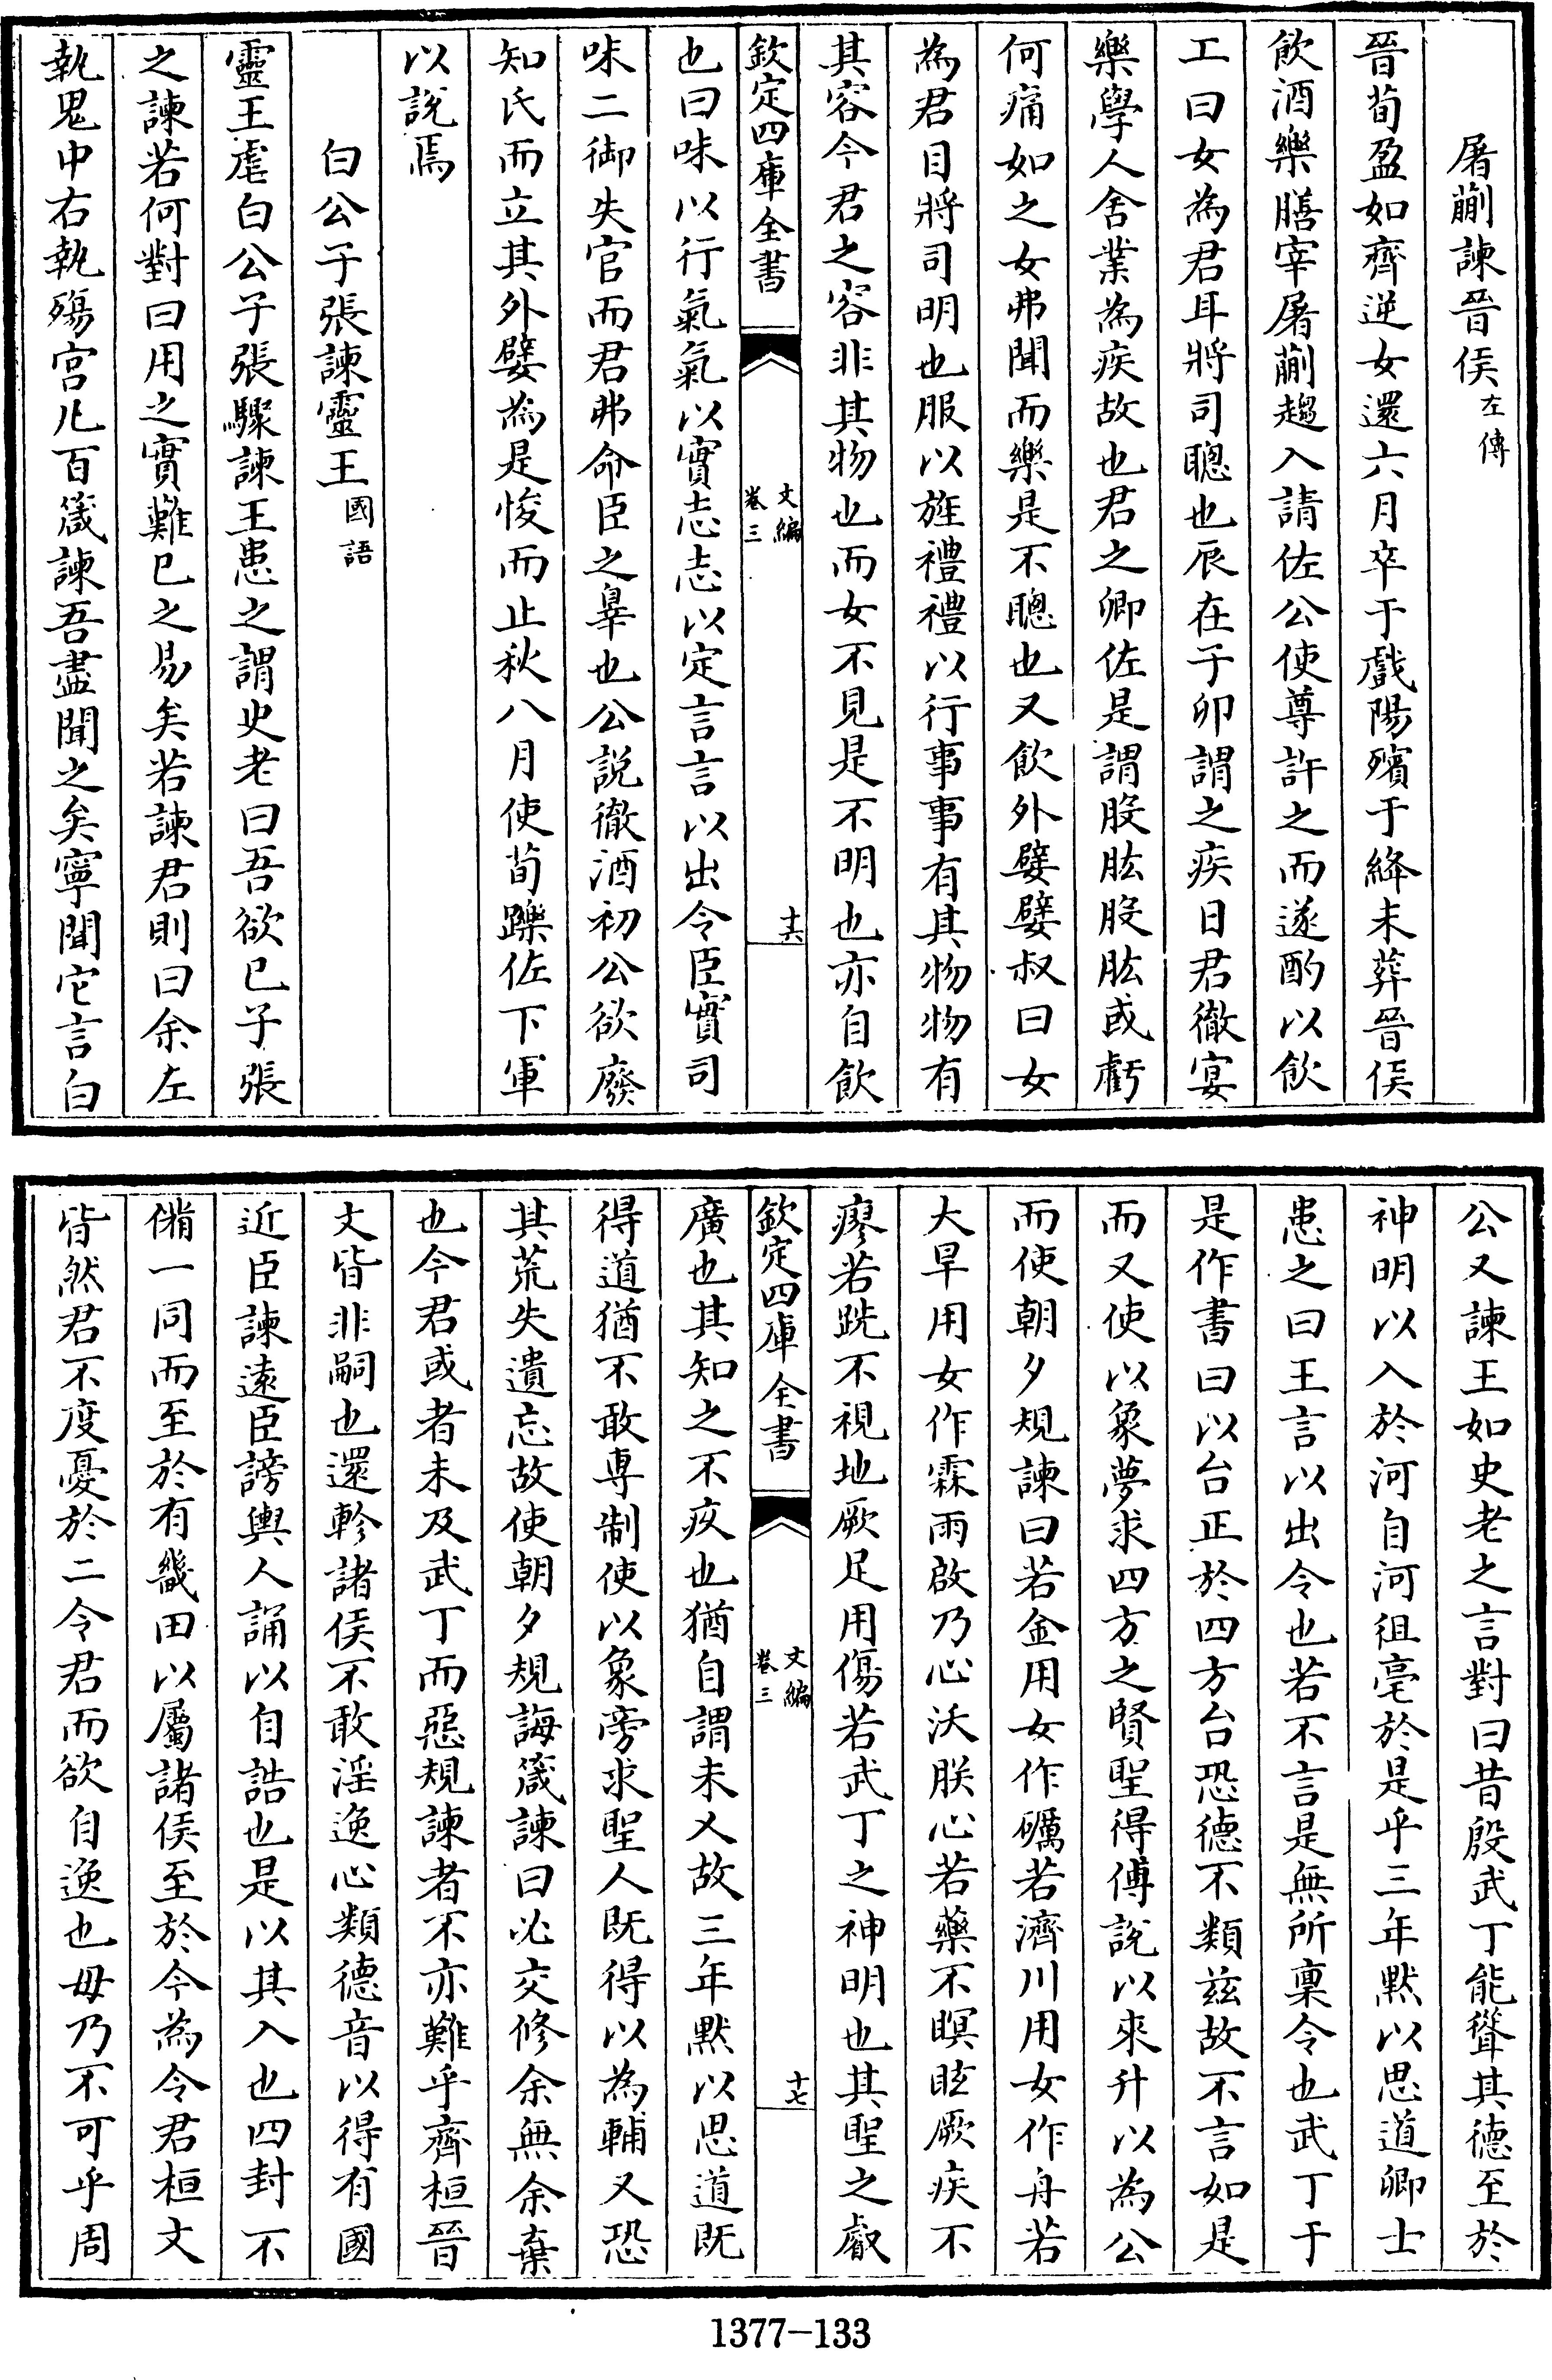 屠蒯諫晉侯左傳
晉荀盈如齊逆女還六月卒于戲陽殯于絳未葬晉侯
飲酒樂膳宰屠蒯趨入請佐公使尊許之而遂酌以飲
工曰女為君耳將司聰也辰在子卯謂之疾日君徹宴
樂學人舍業為疾故也君之卿佐是謂股肱股肱或虧
何痛如之女弗聞而樂是不聰也又飲外嬖嬖叔曰女
為君目將司明也服以旌禮禮以行事事有其物物有
其容今君之容非其物也而女不見是不明也亦自飲
欽定四庫全書
文編
卷三
十六
也曰味以行氣氣以實志志以定言言以出令臣實司
味二御失官而君弗命臣之辠也公說徹酒初公欲廢
知氏而立其外嬖為是悛而止秋八月使荀躒佐下軍
以說焉
白公子張諫靈王國語
靈王虐白公子張驟諫王患之謂史老曰吾欲已子張
之諫若何對曰用之實難已之易矣若諫君則曰余左
執鬼中右執殤宮凡百箴諫吾盡聞之矣寧聞它言白
公又諫王如史老之言對曰昔殷武丁能聳其德至於
神明以入於河自河徂亳於是乎三年黙以思道卿士
患之曰王言以出令也若不言是無所稟令也武丁于
是作書曰以台正於四方台恐德不類茲故不言如是
而又使以象夢求四方之賢聖得傅說以來升以為公
而使朝夕規諫曰若金用女作礪若濟川用女作舟若
大旱用女作霖雨啟乃心沃朕心若藥不瞑眩厥疾不
瘳若跣不視地厥足用傷若武丁之神明也其聖之叡
欽定四庫全書
文編
卷三
十七
廣也其知之不疚也猶自謂未乂故三年黙以思道既
得道猶不敢専制使以象旁求聖人既得以為輔又恐
其荒失遺忘故使朝夕規誨箴諫曰必交修余無余棄
也今君或者未及武丁而惡規諫者不亦難乎齊桓晉
文皆非嗣也還軫諸侯不敢淫逸心類德音以得有國
近臣諫遠臣謗輿人誦以自誥也是以其入也四封不
備一同而至於有畿田以屬諸侯至於今為令君桓文
皆然君不度憂於二令君而欲自逸也毋乃不可乎周
1377-133